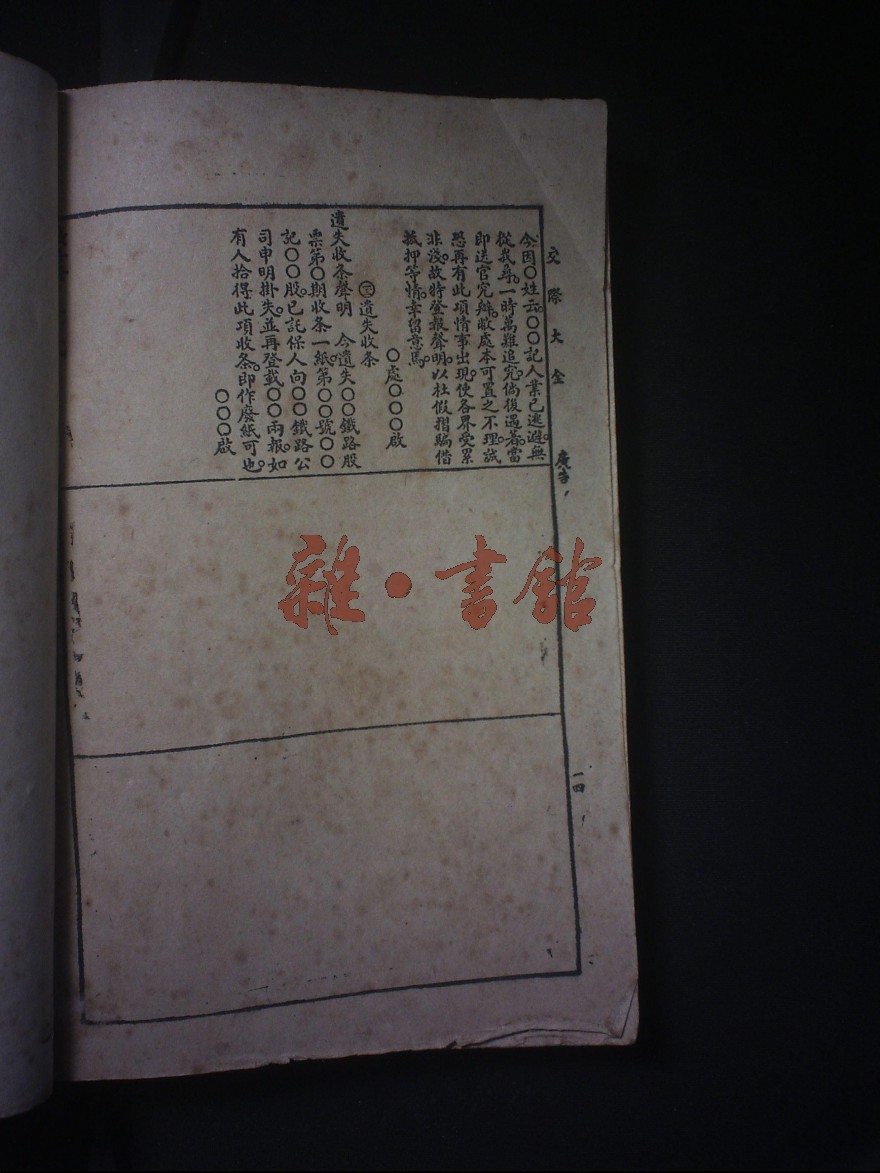 交際大全
廣告
一四
今因〇姓云。〇〇記人業已逃避。無
從我尋。一時萬難追究。倘後遇着。當
即送官究辦。敝處本可置之不理。誠
恐再有此項情事出現。使各界受累
非淺。故特登報聲明。以杜假揩騙借
抵押等情。幸留意焉。
〇處〇〇〇啟
㊂遺失收条
遺失收条聲明 今遺失〇〇鐵路股
票第〇期收条一紙。第〇〇號〇〇
記〇〇股。已託保人向〇〇鐵路公
司申明掛失。並再登載〇〇兩報。如
有人拾得此項收条。即作廢紙可也。
〇〇〇啟
雜·書館